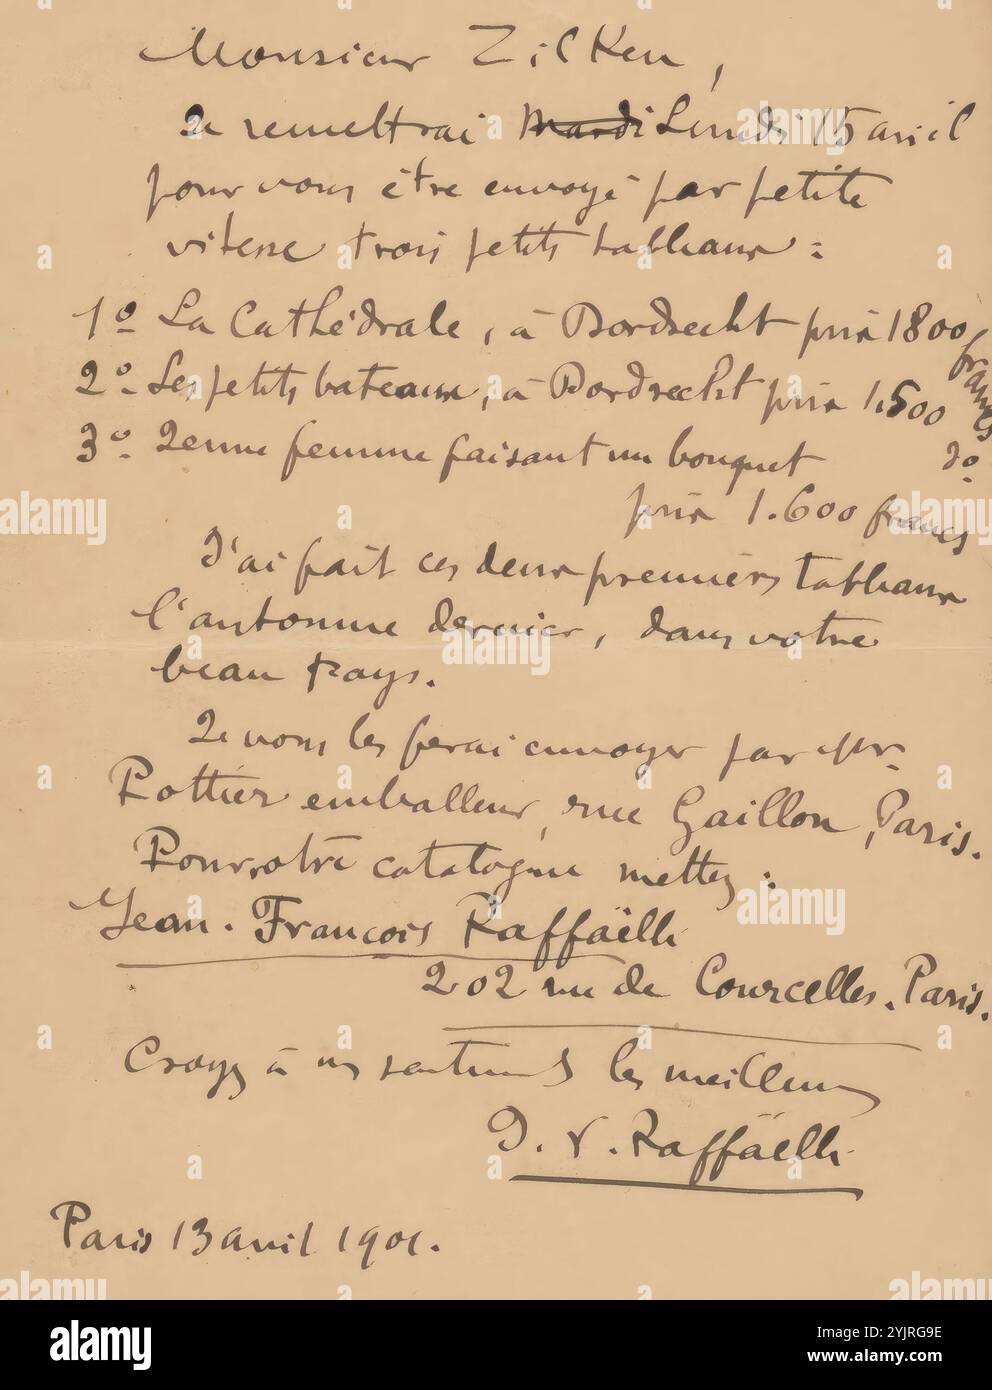 Monsieur Zilken,
Je remettrai Mardi Lundi 15 avril
pour vous être envoyé par petite
vitesse trois petits tableaux :
1º La Cathédrale, à Dordrecht prix 1800 francs
2º Les petits bateaux, à Dordrecht prix 1.500 dº
3º Jeune femme faisant un bouquet
prix 1.600 francs
J'ai fait ces deux premiers tableaux
l'automne dernier, dans votre
beau pays.
Je vous les ferai envoyer par Mr
Pottier emballeur, rue Gaillon, Paris.
Pour votre catalogue mettez :
Jean-François Raffaëlli
202 rue de Courcelles. Paris.
Croyez à mes sentiments les meilleurs
J. F. Raffaëlli
Paris 13 avril 1901.
alamy
Image ID: 2YJRG9E
www.alamy.com